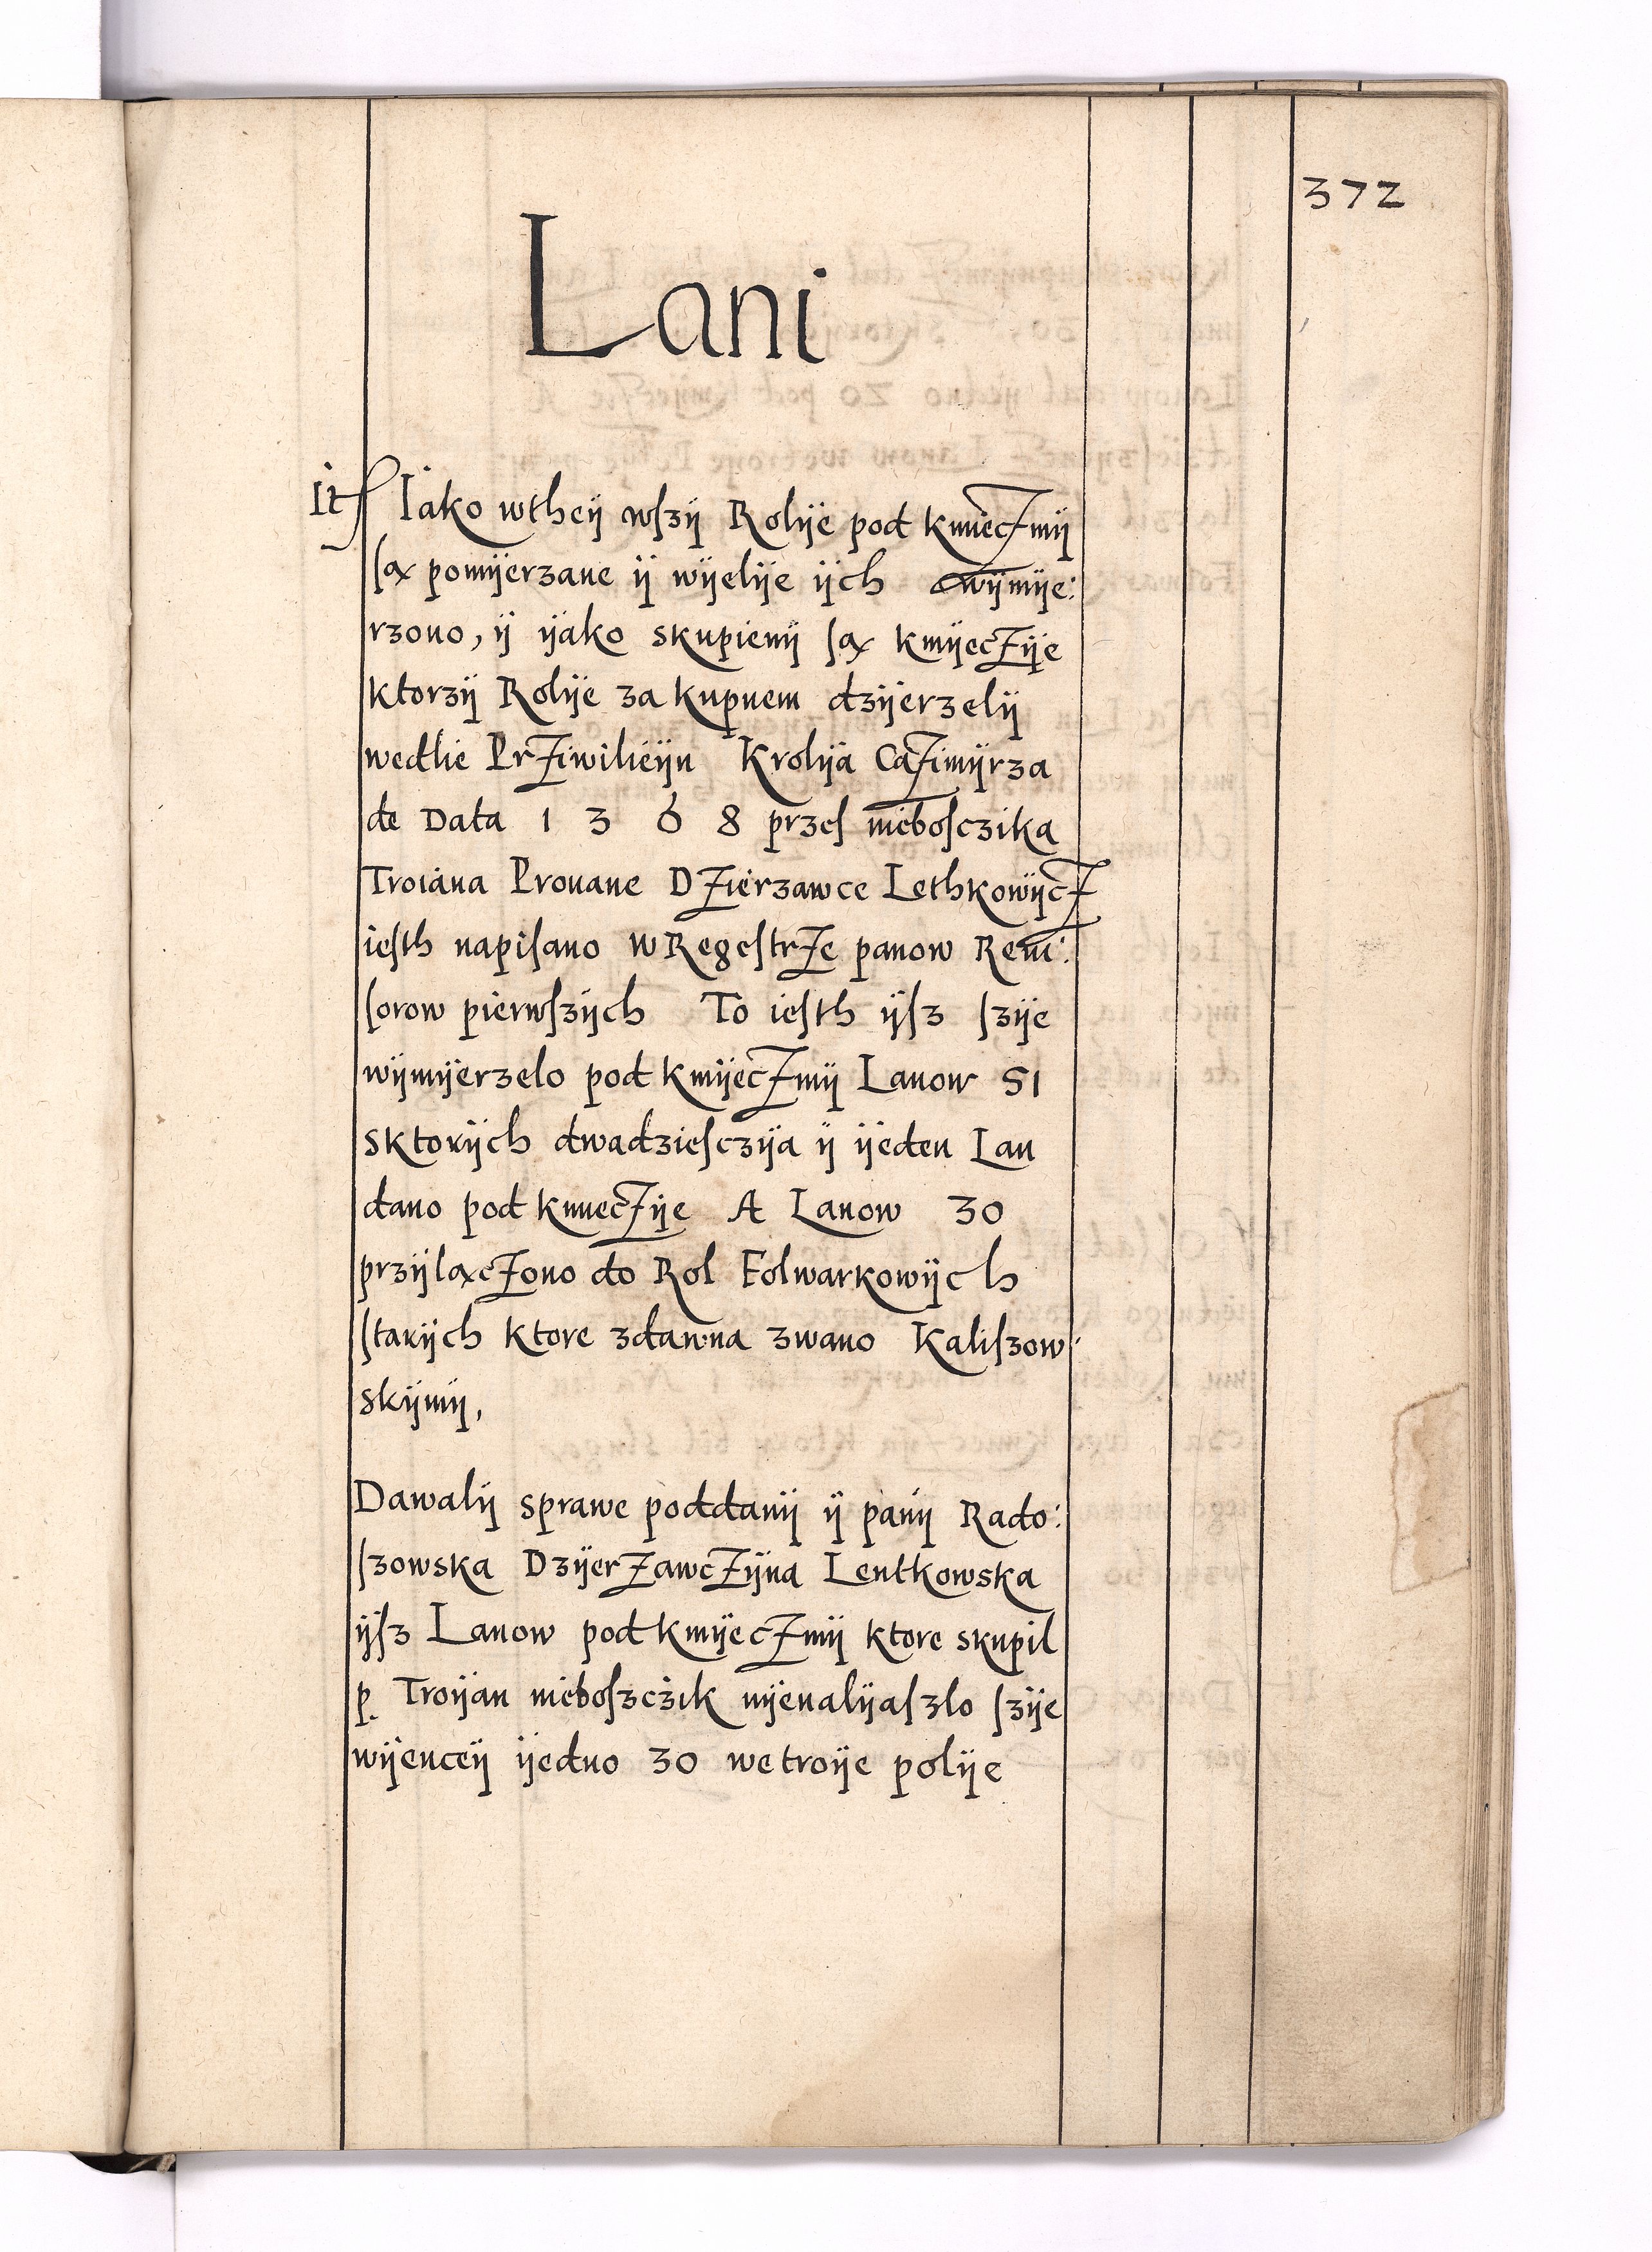 372
Lani
It Iako wtheÿ wſzÿ Rolÿe pod kmiecżmÿ
ſą pomÿerzane ÿ wÿelÿe ÿch wÿmÿe:
rzono, ÿ ÿako skupienÿ ſą kmÿecżÿe
ktorzÿ Rolÿe za kupnem dzÿerzelÿ
wedlie Prżiwilieÿu Krolÿa Cażimÿrza
de Data 1 3 6 8 przeſ nieboſczika
Troiana Prouane Dżierzawce Lethkowÿcż
ieſth napiſano w Regeſtrże panow Reui:
ſorow pierwſzÿch To ieſth ÿſz ſzÿe
wÿmÿerzelo pod kmÿecżmÿ Lanow 51
sktorÿch dwadzieſczÿa ÿ ÿeden Lan
dano pod kmiecżÿe A Lanow 30
przÿlącżono do Rol Folwarkowÿch
ſtarÿch ktore zdawna zwano Kaliſzow:
skÿmÿ,
Dawalÿ sprawe poddanÿ ÿ panÿ Rado:
ſzowska Dzÿerżawcżÿna Lentkowska
ÿſz Lanow pod kmÿecżmÿ ktore skupil
p. Troÿan nieboſzczik nÿenalÿaſzlo ſzÿe
wÿenceÿ ÿedno 30 wetroÿe polÿe